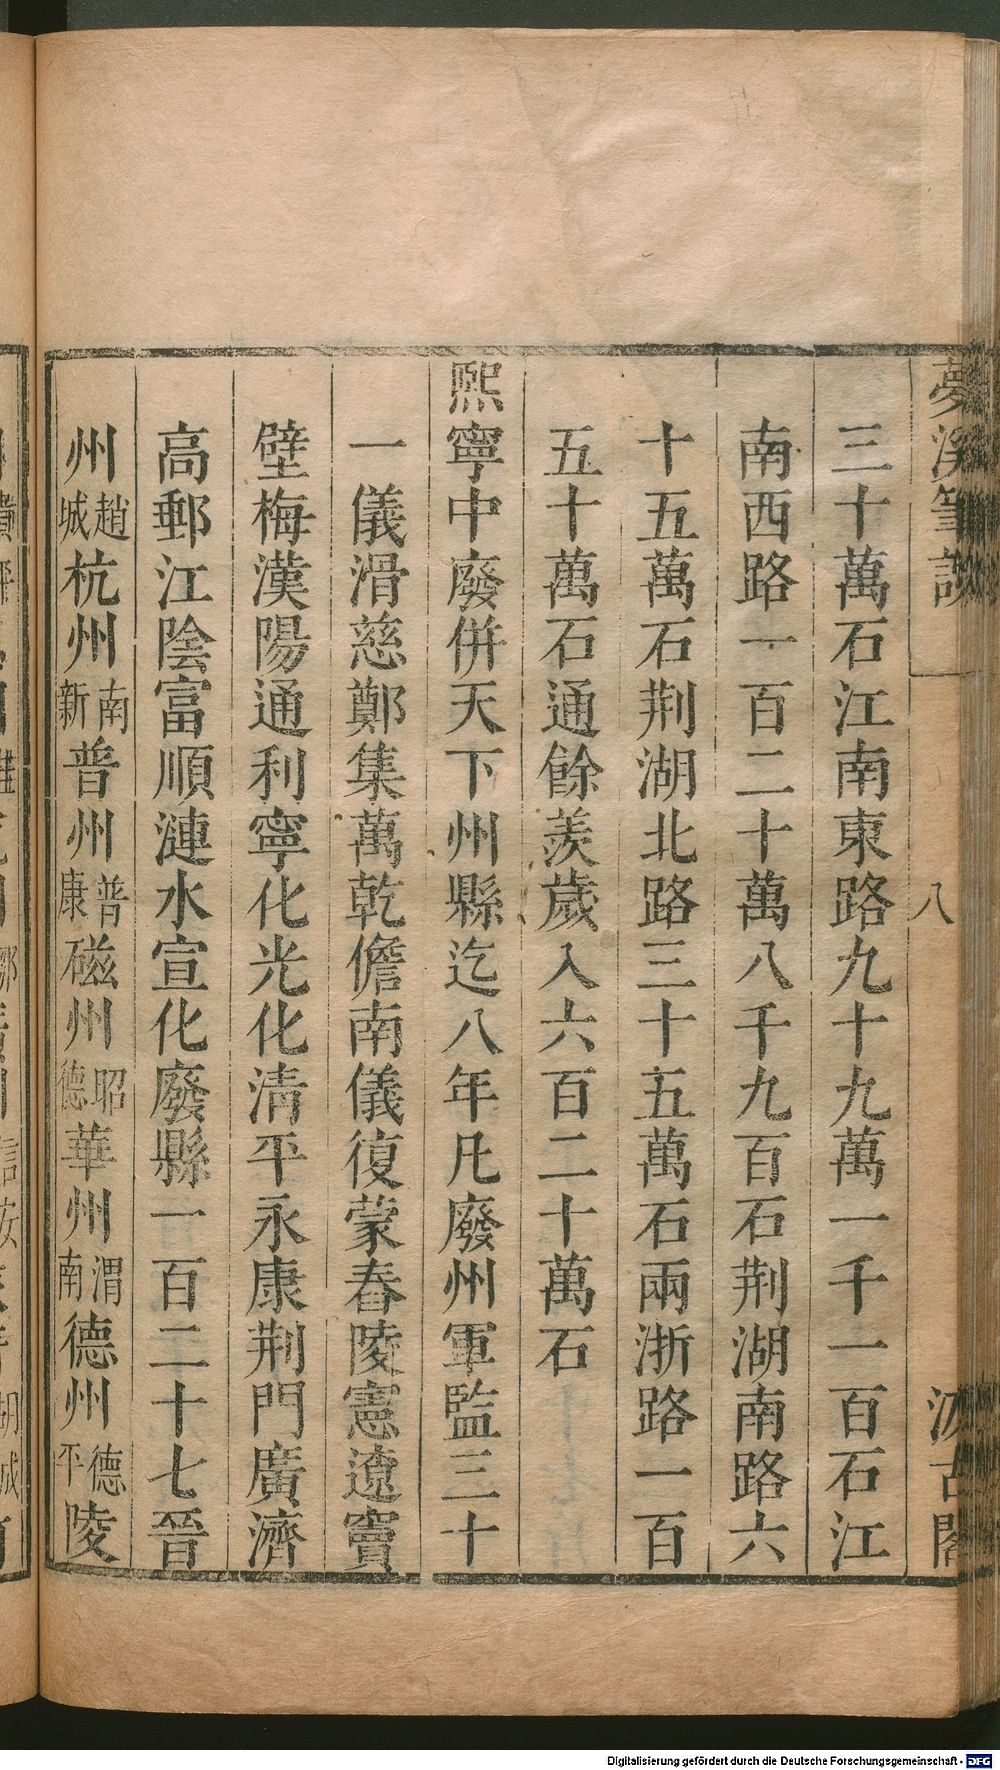 夢溪筆談 八 汲古閣
三十萬石江南東路九十九萬一千一百石江
南西路一百二十萬八千九百石荆湖南路六
十五萬石荆湖北路三十五萬石兩浙路一百
五十萬石通餘羨歲入六百二十萬石
熙寧中廢併天下州縣迄八年凡廢州軍監三十
一儀滑慈鄭集萬乾儋南儀復蒙春陵憲遼竇
壁梅漢陽通利寧化光化清平永康荆門廣濟
高郵江陰富順漣水宣化廢縣一百二十七晉
州趙城杭州南新普州普康磁州昭德華州渭南德州德平陵
Digitalisierung gefördert durch die Deutsche Forschungsgemeinschaft - DFG